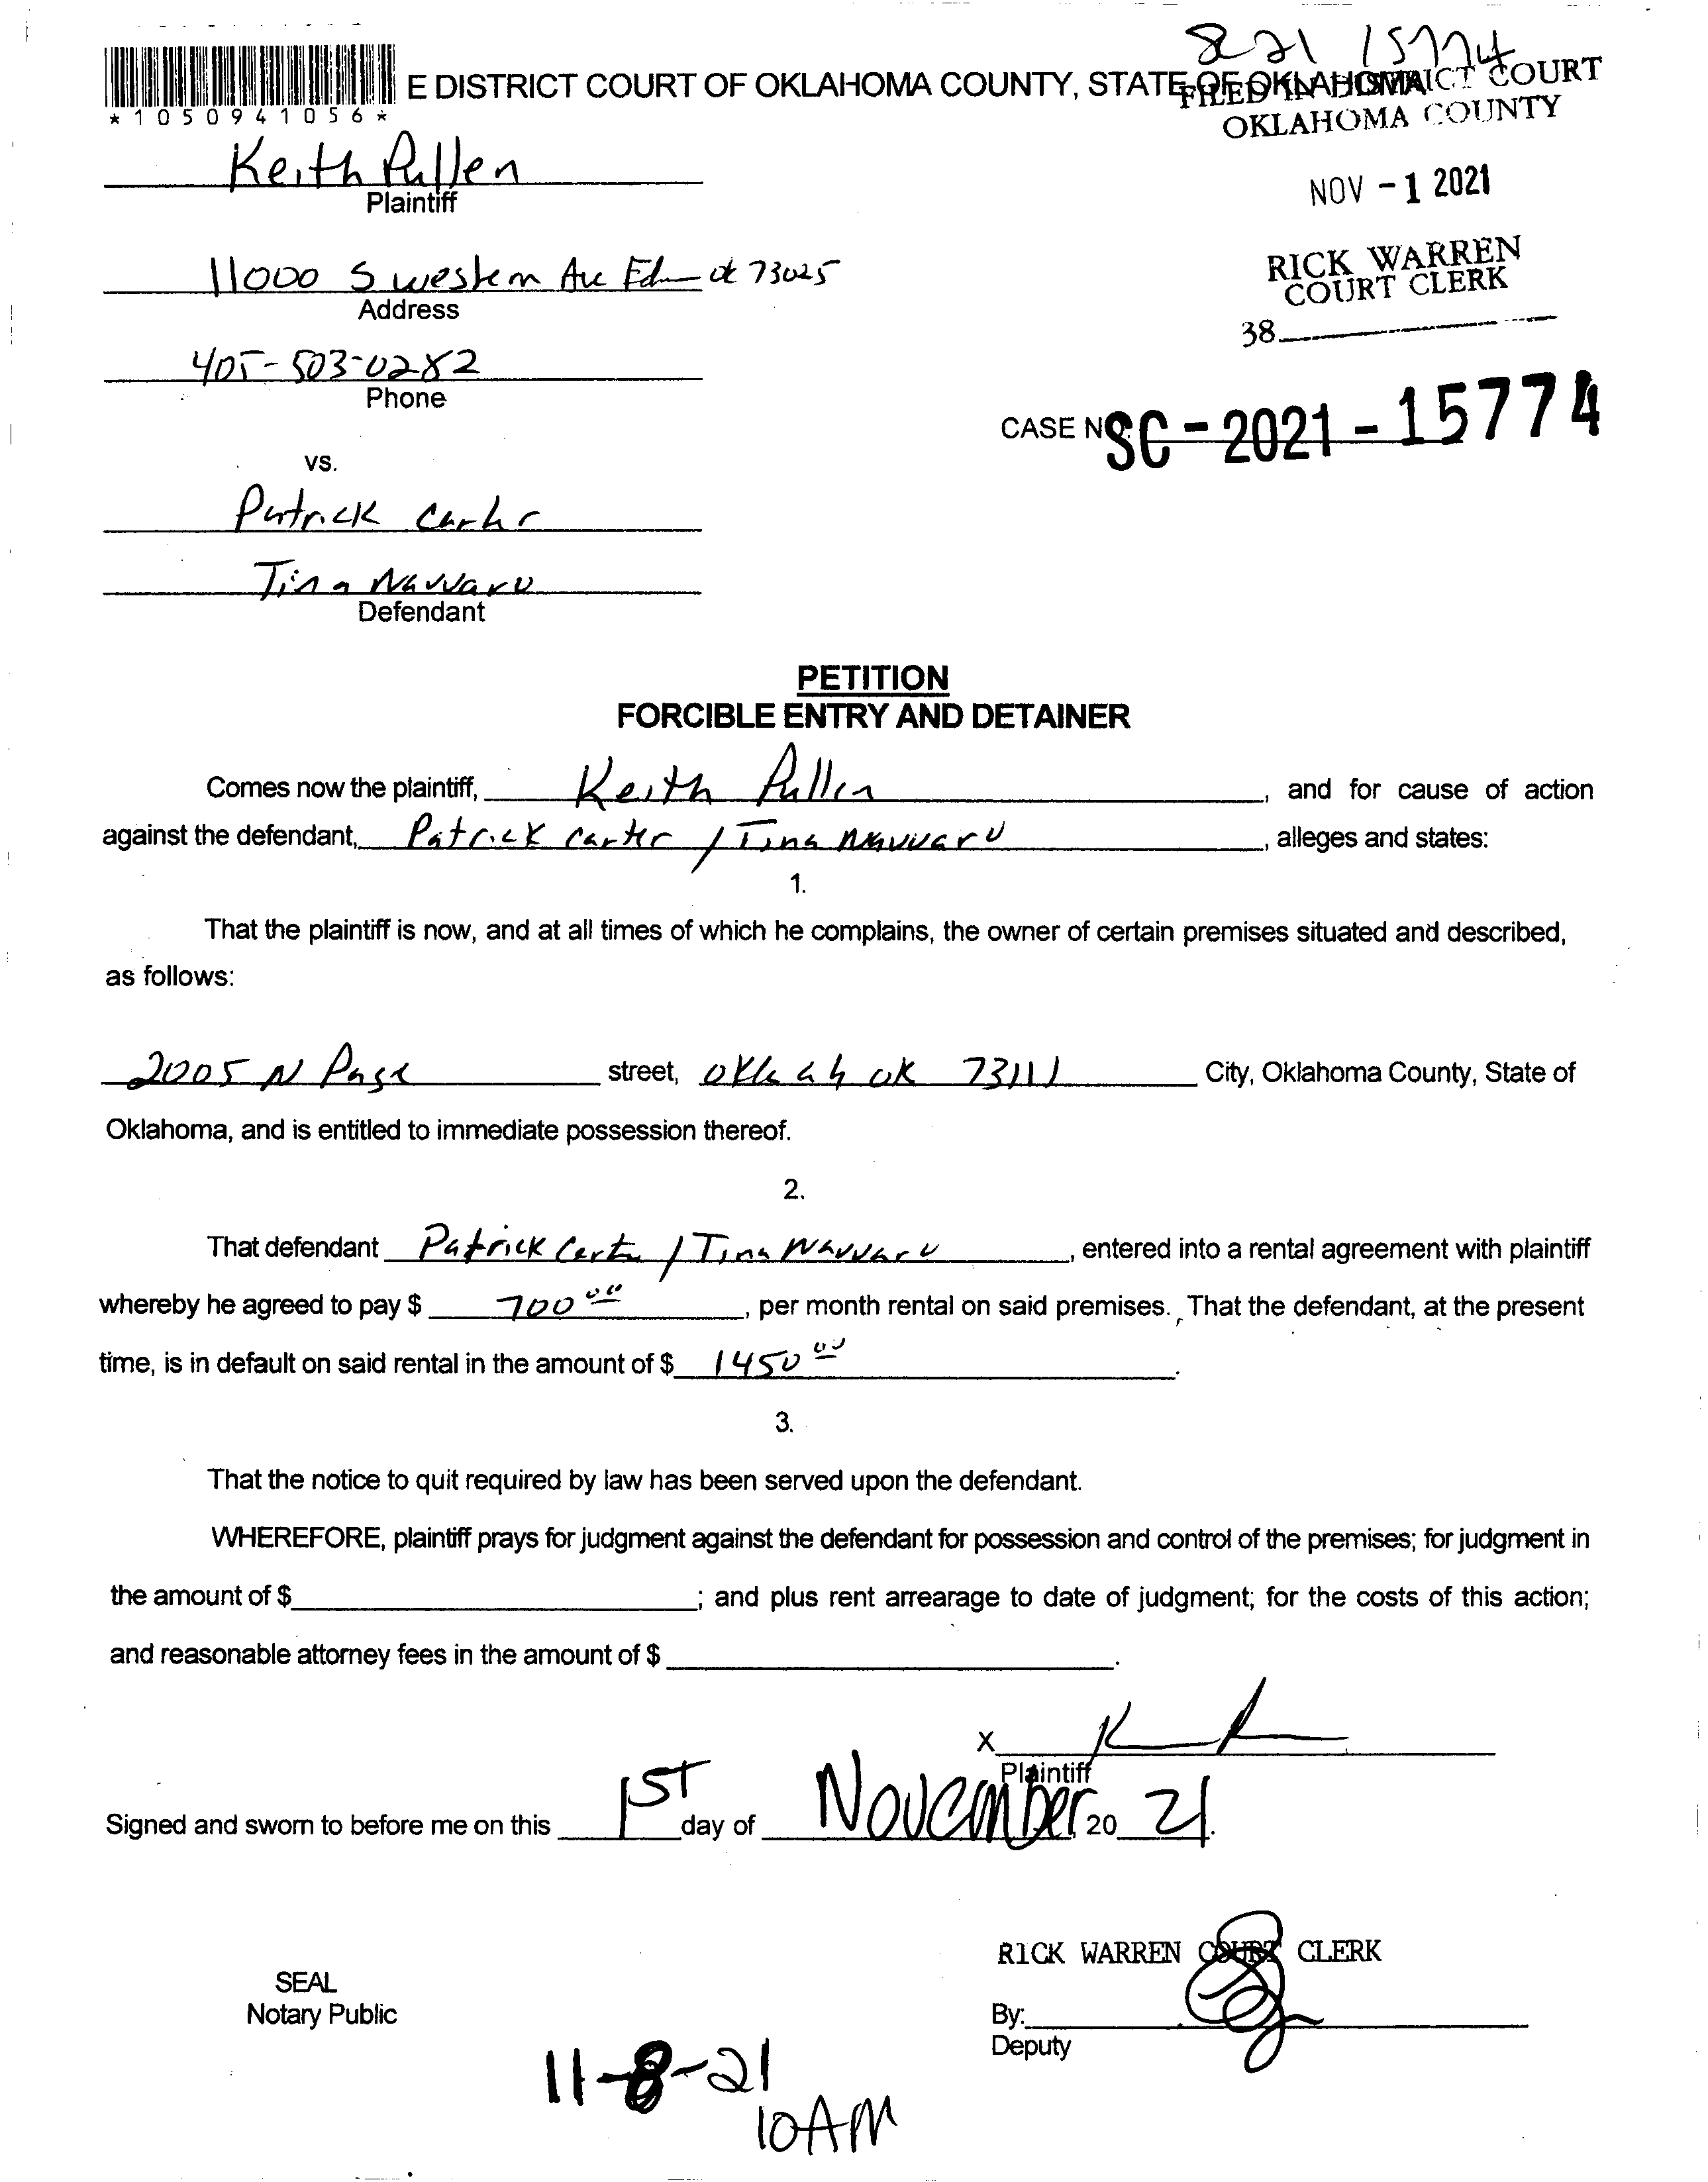 821 15774
E DISTRICT COURT OF OKLAHOMA COUNTY, STATE OF OKLAHOMA
FILED IN DISTRICT COURT
OKLAHOMA COUNTY
*1050941056*
Keith Pullen
Plaintiff
NOV - 1 2021
11000 S western Ave Edm ok 73025
Address
RICK WARREN
COURT CLERK
38
405-503-0282
Phone
CASE NO. SC - 2021 - 15774
vs.
Patrick Carter
Tina Navvaro
Defendant
PETITION
FORCIBLE ENTRY AND DETAINER
Comes now the plaintiff, Keith Pullen, and for cause of action
against the defendant, Patrick Carter / Tina Navvaro, alleges and states:
1.
That the plaintiff is now, and at all times of which he complains, the owner of certain premises situated and described,
as follows:
2005 N Page street, ok 73111 City, Oklahoma County, State of
Oklahoma, and is entitled to immediate possession thereof.
2.
That defendant Patrick Carter / Tina Navvaro, entered into a rental agreement with plaintiff
whereby he agreed to pay $ 700 00, per month rental on said premises. That the defendant, at the present
time, is in default on said rental in the amount of $ 1450 00.
3.
That the notice to quit required by law has been served upon the defendant.
WHEREFORE, plaintiff prays for judgment against the defendant for possession and control of the premises; for judgment in
the amount of $; and plus rent arrearage to date of judgment; for the costs of this action;
and reasonable attorney fees in the amount of $.
X
Plaintiff
Signed and sworn to before me on this 1ST day of November, 20 21.
RICK WARREN COURT CLERK
SEAL
Notary Public
By:
Deputy
11-8-21
10AM